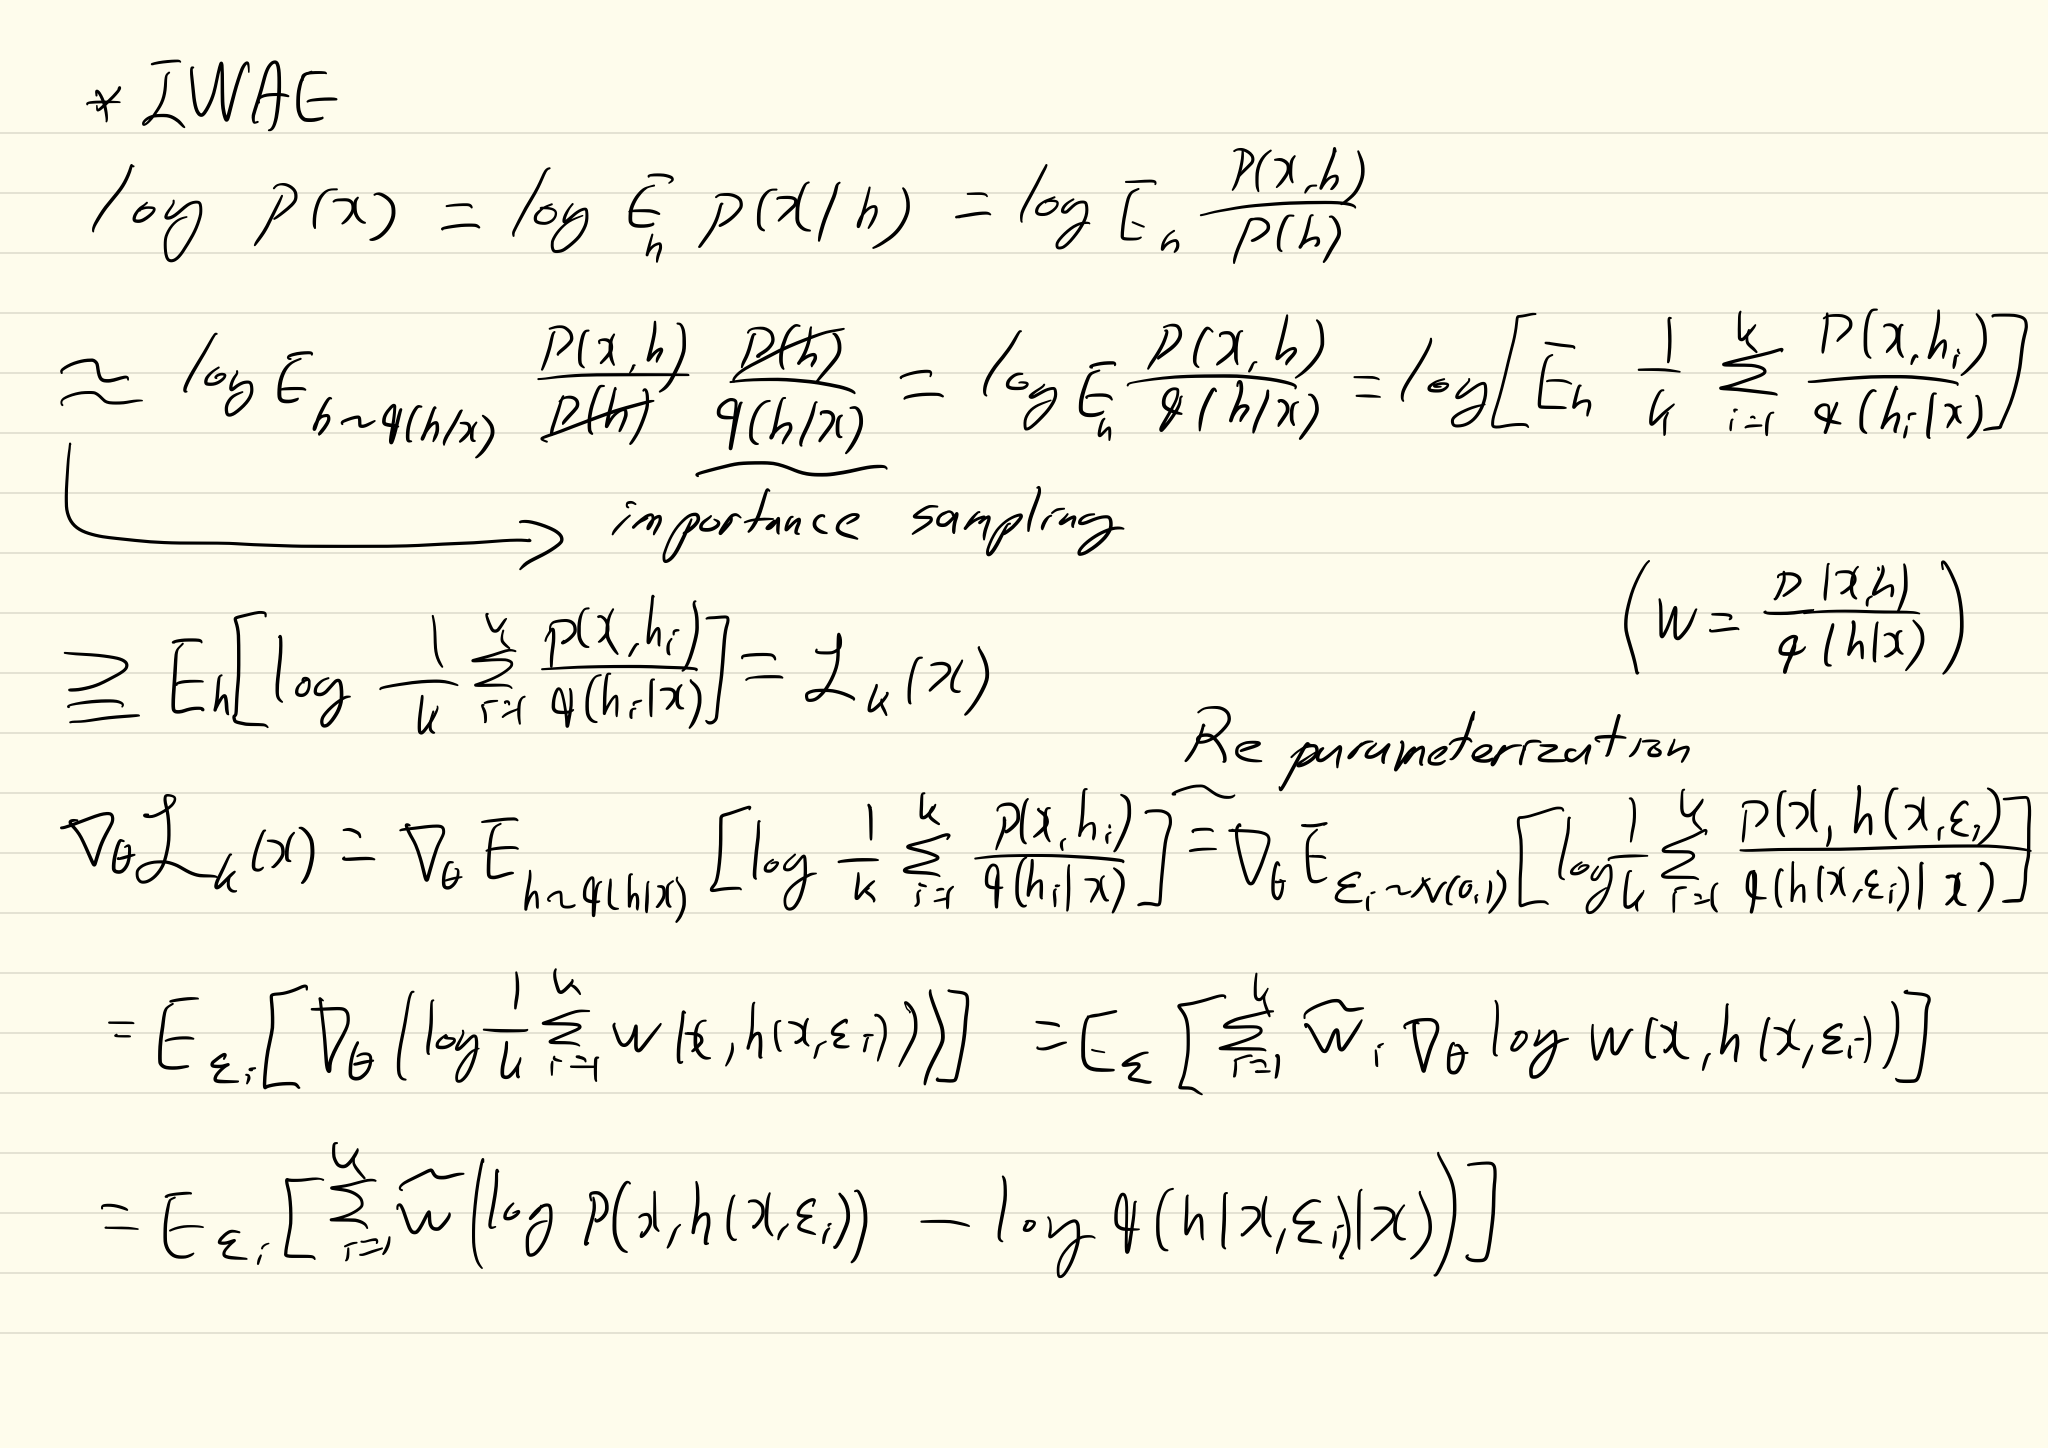 * IWAE
log P(x) = log E_h p(x|h) = log E_h P(x,h)/P(h)
≈ log E_{h~q(h|x)} P(x,h)/P(h) P(h)/q(h|x) = log E_h P(x,h)/q(h|x) = log[E_h 1/k Σ_{i=1}^k P(x,h_i)/q(h_i|x)]
importance sampling
(w = P(x,h)/q(h|x))
≧ E_h[log 1/k Σ_{i=1}^k p(x,h_i)/q(h_i|x)] = ℒ_k(x)
Reparameterization
∇_θ ℒ_k(x) = ∇_θ E_{h~q(h|x)} [log 1/k Σ_{i=1}^k p(x,h_i)/q(h_i|x)] = ∇_θ E_{ε_i~N(0,1)} [log 1/k Σ_{i=1}^k p(x,h(x,ε_i)/q(h(x,ε_i)|x)]
= E_{ε_i}[∇_θ (log 1/k Σ_{i=1}^k w(x,h(x,ε_i)))] = E_ε [Σ_{i=1}^k w̃_i ∇_θ log w(x,h(x,ε_i))]
= E_{ε_i}[Σ_{i=1}^k w̃(log p(x,h(x,ε_i)) − log q(h|x,ε_i)|x))]